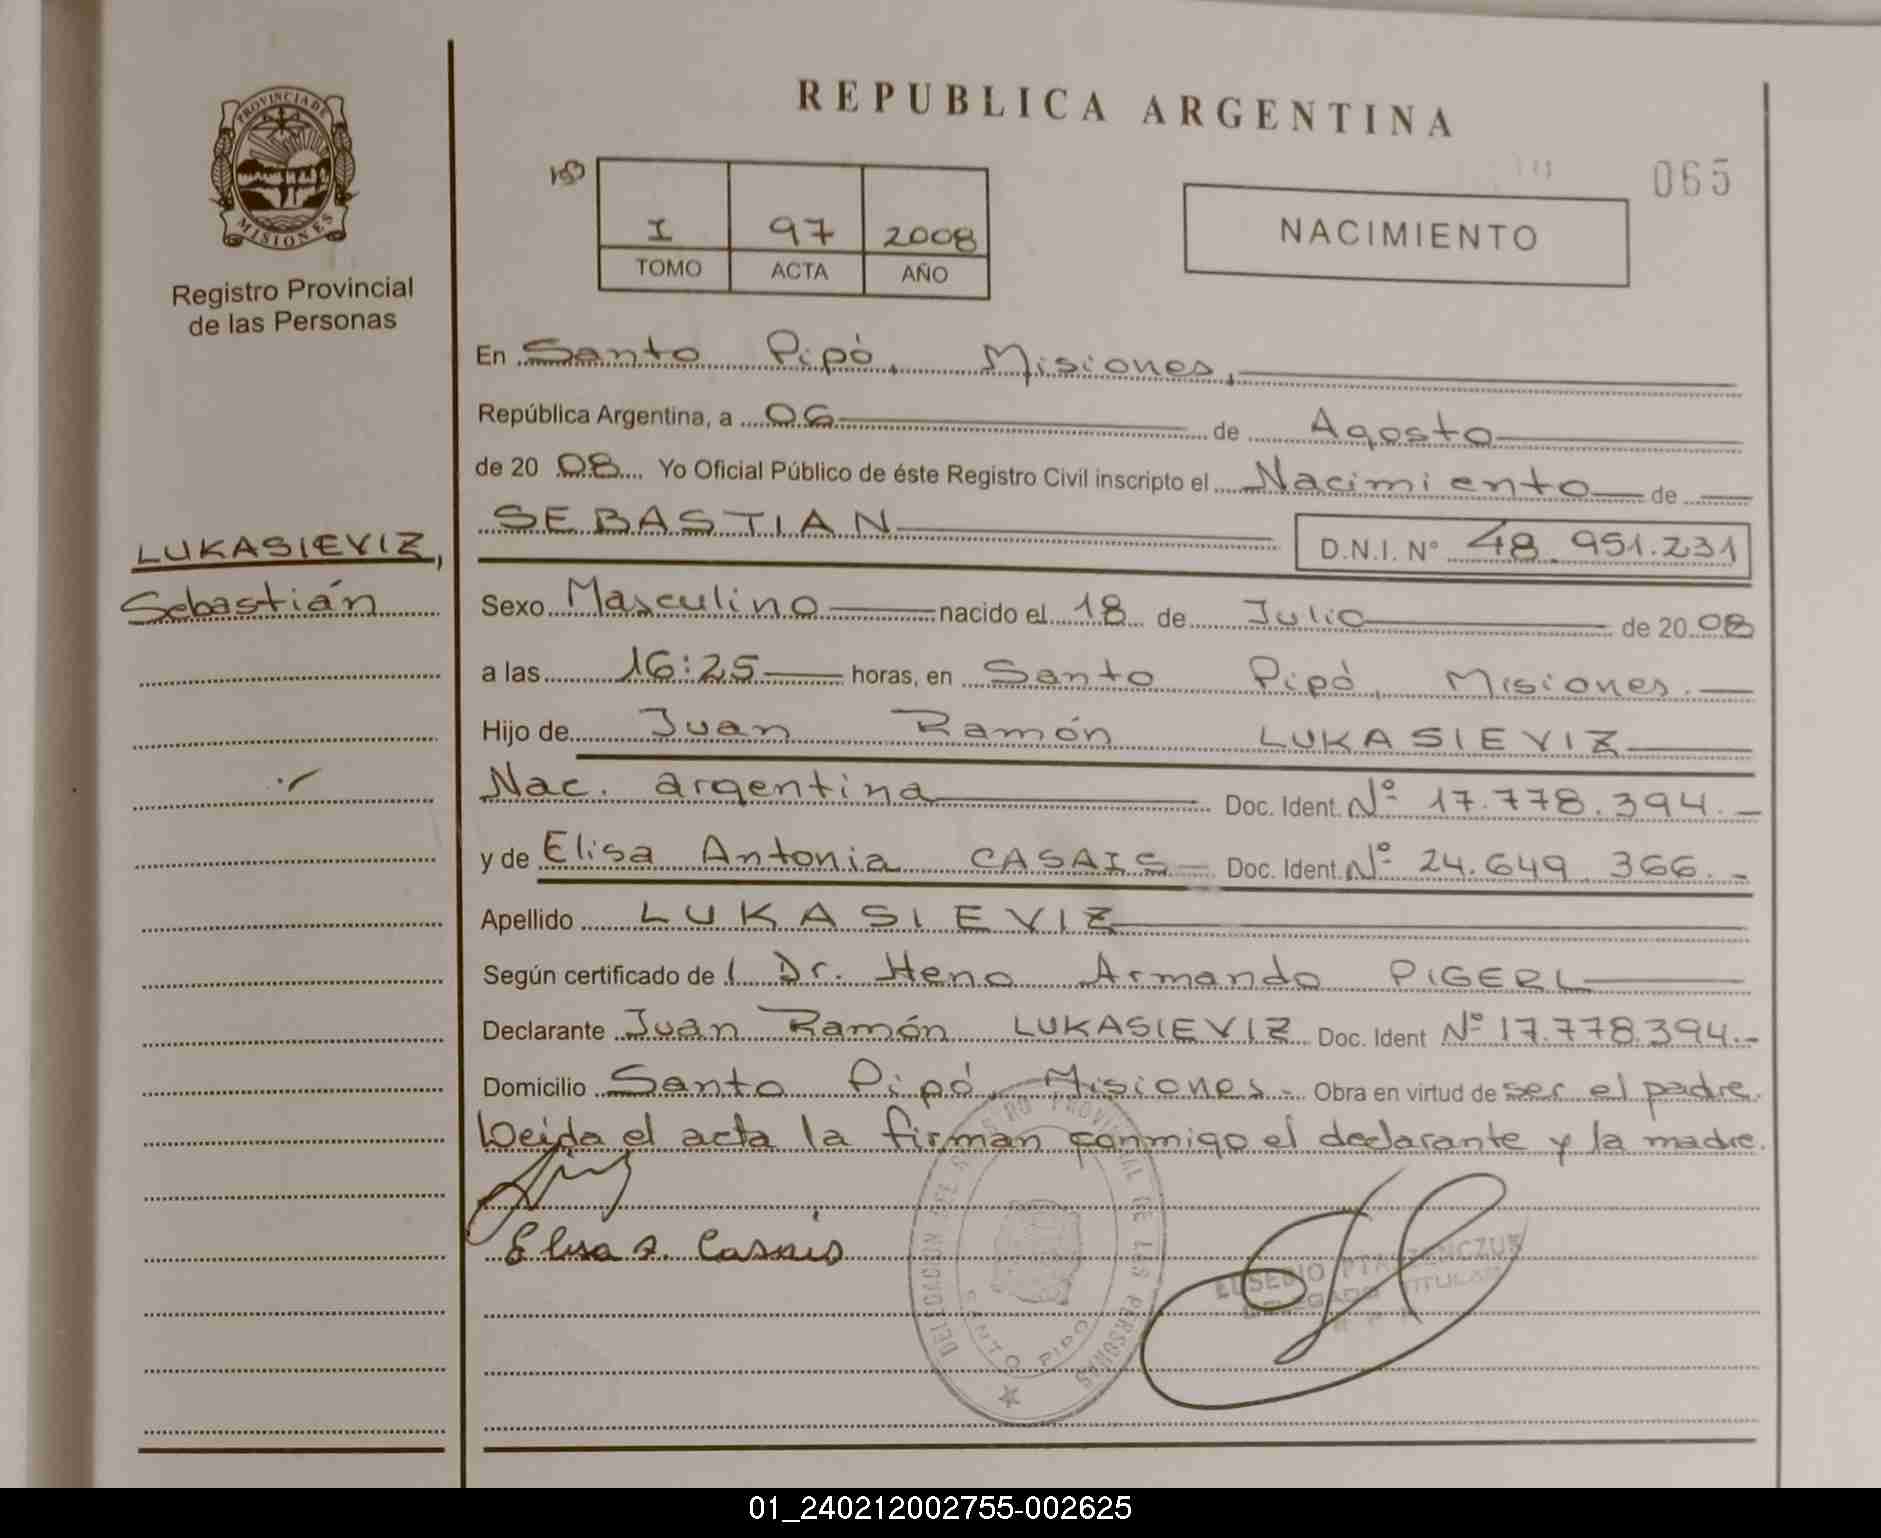 PROVINCIA DE
MISIONES
Registro Provincial
de las Personas
LUKASIEVIZ,
Sebastián
REPUBLICA ARGENTINA
065
I 97 2008
TOMO ACTA AÑO
NACIMIENTO
En Santo Pipó, Misiones,
República Argentina, a 06 de Agosto
de 2008 Yo Oficial Público de éste Registro Civil inscripto el Nacimiento de
SEBASTIAN D.N.I. N° 48.951.231
Sexo Masculino nacido el 18 de Julio de 2008
a las 16:25 horas, en Santo Pipó, Misiones.
Hijo de Juan Ramón LUKASIEVIZ
Nac. argentina Doc. Ident. Nº 17.778.394.-
y de Elisa Antonia CASAIS Doc. Ident. Nº 24.649.366.-
Apellido LUKASIEVIZ
Según certificado de l Dr. Heno Armando PIGERL
Declarante Juan Ramón LUKASIEVIZ Doc. Ident Nº 17.778.394.-
Domicilio Santo Pipó, Misiones.- Obra en virtud de ser el padre.
Leida el acta la firman conmigo el declarante y la madre.
Elisa A. Casais
DELEGACION DEL REGISTRO PROVINCIAL DE LAS PERSONAS
SANTO PIPO
EUSEBIO PTASZENCZUK
DELEGADO TITULAR
01_240212002755-002625